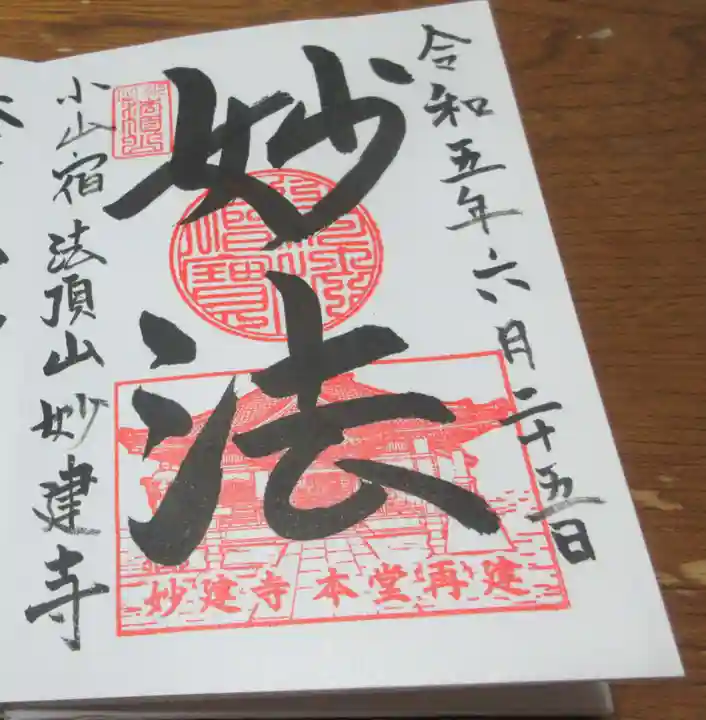 令和五年六月二十五日
妙法
小山宿 法頂山 妙建寺
妙建寺 本堂再建